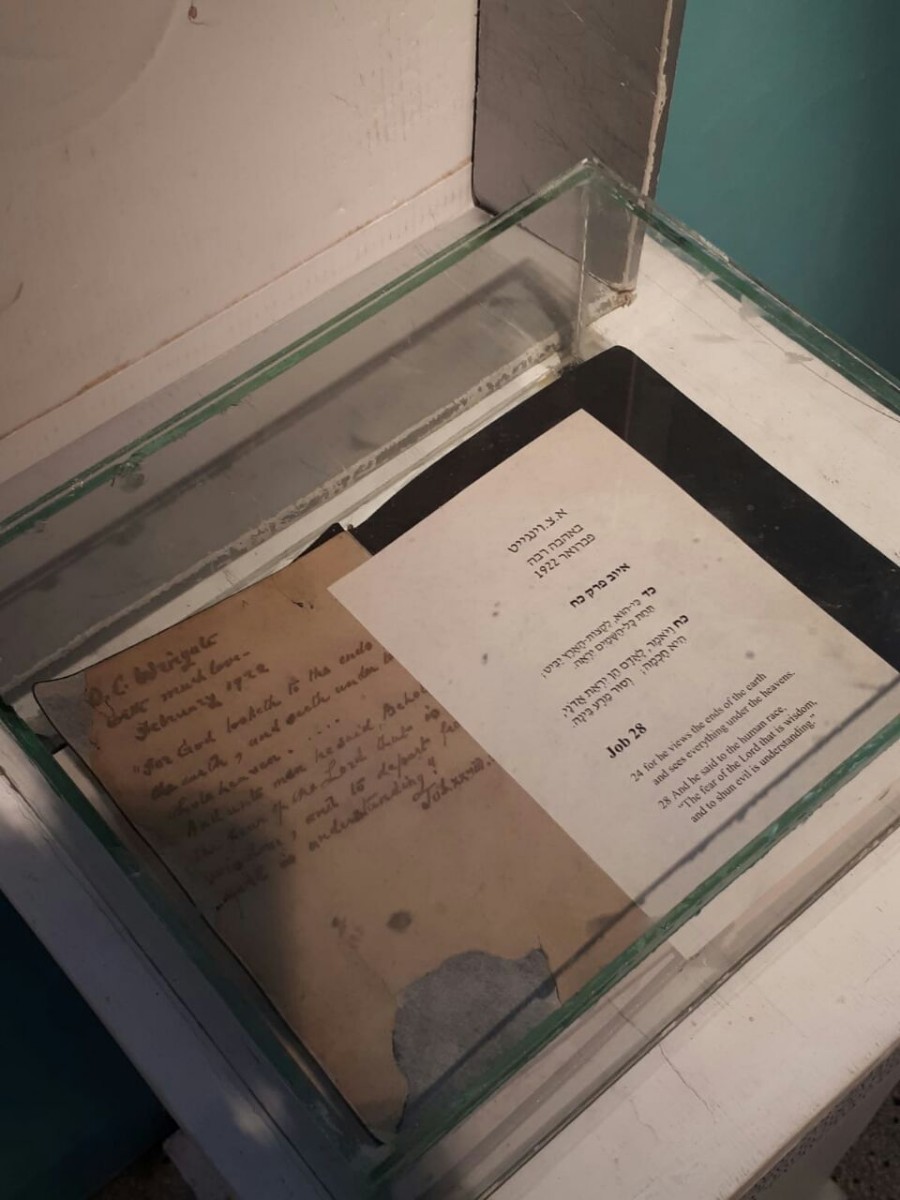 O.C. Wingate
with much love-
February 1922
"For God looketh to the ends
the earth, and seeth under
whole heaven. . . . .
And unto man he said, Behol
the fear of the Lord that is
wisdom, and to depart
evil is understanding"
Job xxviii.
א.צ. וינגייט
באהבה רבה
פברואר 1922
איוב פרק כח
כד כִּי-הוּא, לִקְצוֹת-הָאָרֶץ יַבִּיט;
תַּחַת כָּל-הַשָּׁמַיִם יִרְאֶה.
כח וַיֹּאמֶר, לָאָדָם הֵן יִרְאַת אֲדֹנָי,
הִיא חָכְמָה; וְסוּר מֵרָע בִּינָה.
Job 28
24 for he views the ends of the earth
and sees everything under the heavens.
28 And he said to the human race,
"The fear of the Lord that is wisdom,
and to shun evil is understanding."